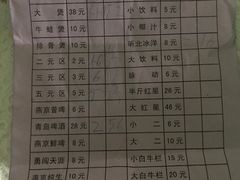 大煲 38元 小饮料 5元
牛蛙煲 10元 小椰汁 8元
排骨煲 10元 听北冰洋 8元
二元区 2元 大饮料 10元
三元区 3元 脉动 6元
五元区 5元 半斤红星 26元
燕京普啤 6元 大红星 46元
青岛啤酒 28元 小二 6元
燕京鲜啤 8元 大二 10元
勇闯天涯 8元 小白牛栏 15元
燕京纯生 10元 大白牛栏 20元